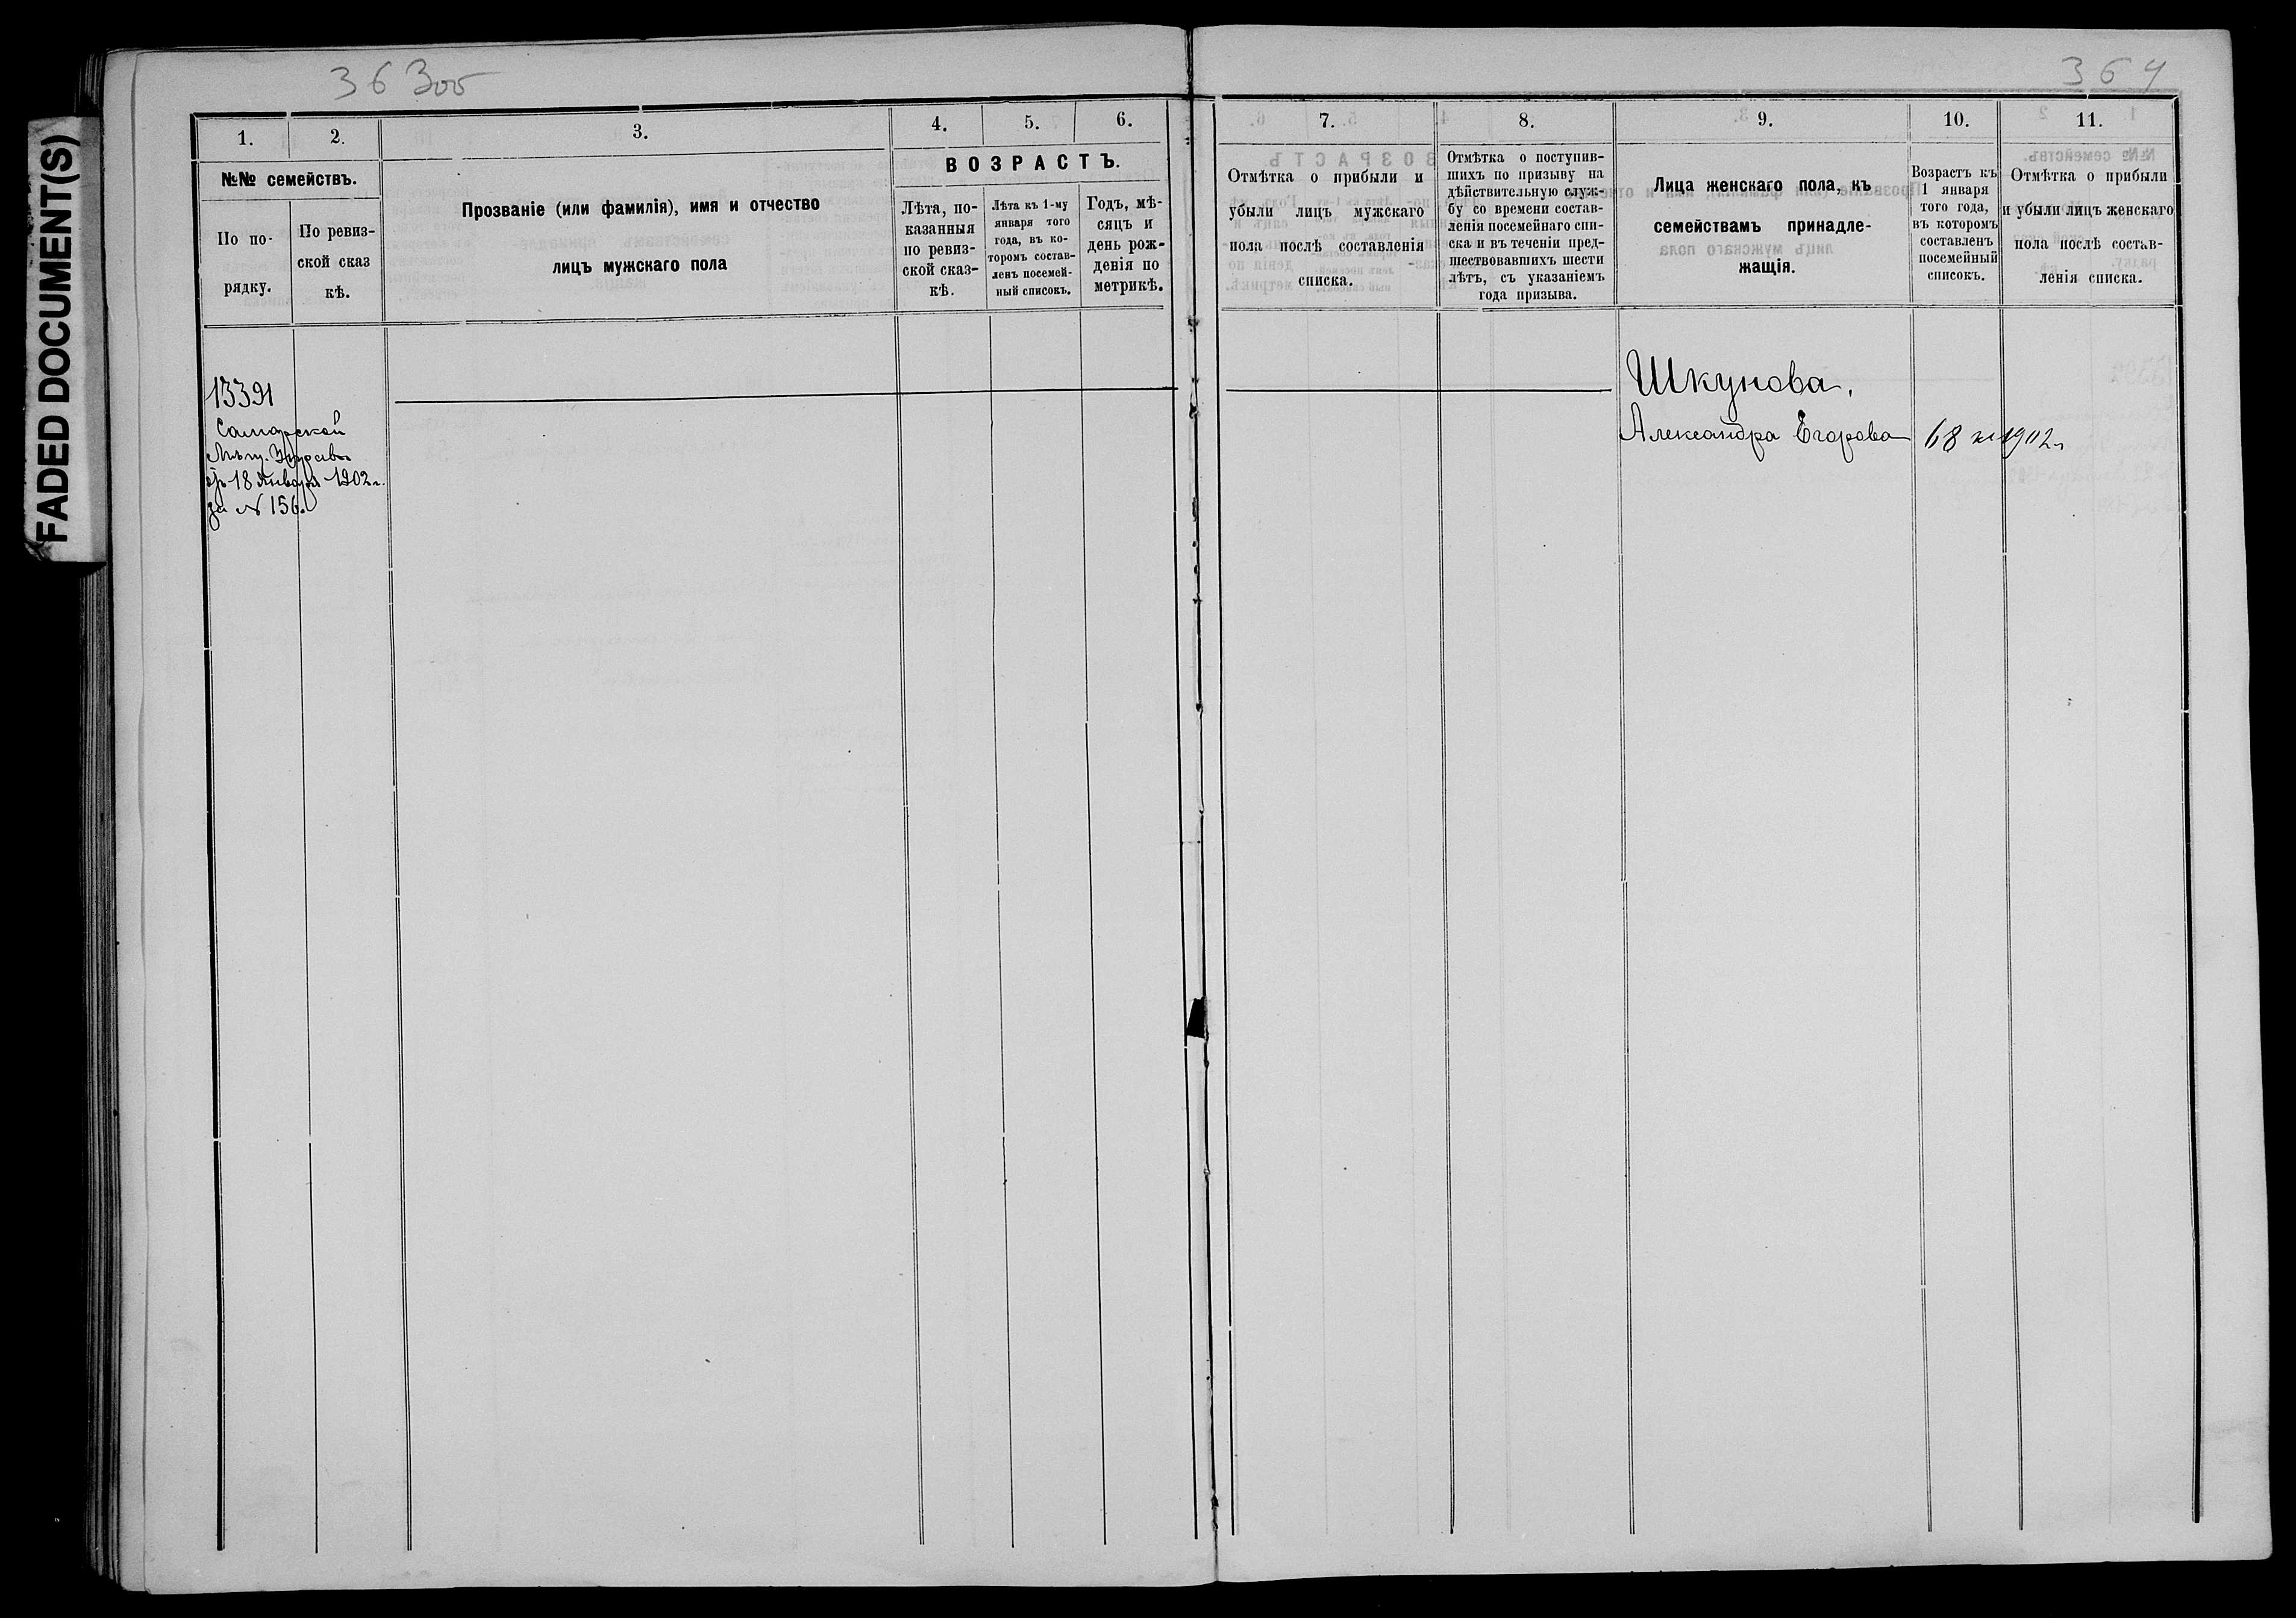 FADED DOCUMENT(S)
363об
364
1.
2.
3.
4.
5.
6.
№№ семействъ.
По по-
рядку.
По ревиз-
ской сказ
кѣ.
Прозваніе (или фамилія), имя и отчество
лицъ мужскаго пола
ВОЗРАСТЪ.
Лѣта, по-
казанныя
по ревиз-
ской сказ-
кѣ.
Лѣта къ 1-му
января того
года, въ ко-
торомъ состав-
ленъ посемей-
ный списокъ.
Годъ, мѣ-
сяцъ и
день рож-
денія по
метрикѣ.
13391
Самарской
Мѣщ. Управы
отъ 18 Января 1902 г.
за № 156.
7.
8.
9.
10.
11.
Отмѣтка о прибыли и
убыли лицъ мужскаго
пола послѣ составленія
списка.
Отмѣтка о поступив-
шихъ по призыву на
дѣйствительную служ-
бу со времени состав-
ленія посемейнаго спи-
ска и въ теченіи пред-
шествовавшихъ шести
лѣтъ, съ указаніемъ
года призыва.
Лица женскаго пола, къ
семействамъ принадле-
жащія.
Возрастъ къ
1 января
того года,
въ которомъ
составленъ
посемейный
списокъ.
Отмѣтка о прибыли
и убыли лицъ женскаго
пола послѣ состав-
ленія списка.
Шкунова,
Александра Егорова 68 1902 г.